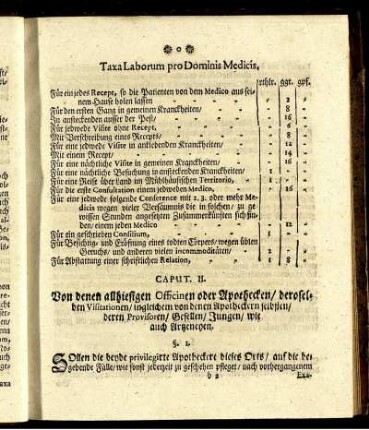 Taxa Laborum pro Dominis Medicis,
rthlr. ggr. gpf.
Für ein jedes Recept, so die Patienten von dem Medico aus sei-
nem Hause holen lassen - 2 -
Für den ersten Gang in gemeinen Kranckheiten/ - 8 -
In ansteckenden ausser der Pest/ - 16 -
Für jedwede Visite ohne Recept, - 6 -
Mit Verschreibung eines Recepts/ - 8 -
Für eine jedwede Visite in anklebenden Kranckheiten/ - 12 -
Mit einem Recept/ - 14 -
Für eine nächtliche Visite in gemeinen Kranckheiten/ - 16 -
Für eine nächtliche Besuchung in ansteckenden Kranckheiten/ 1 - -
Für eine Reise über Land im Mühlhäusischen Territorio, 1 - -
Für die erste Consultation einem jedweden Medico, - 16 -
Für eine jedwede folgende Conference mit 2. 3. oder mehr Me-
dicis wegen vieler Versäumnis die in solchen/ zu ge-
wissen Stunden angesetzten Zusammenkünften sich fin-
den/ einem jeden Medico - 12 -
Für ein geschrieben Consilium, 1 - -
Für Besichtig- und Eröffnung eines todten Cörpers/ wegen üblen
Geruchs/ und anderen vielen incommoditäten/ 2 - -
Für Abstattung einer schriftlichen Relation, 1 8 -
CAPUT. II.
Von denen allhiesigen Officinen oder Apothecken/ derosel-
ben Visitationen/ ingleichen von denen Apotheckern selbsten/
deren Provisoren/ Gesellen/ Jungen/ wie
auch Artzeneyen.
§. 1.
Sollen die beyde privilegirte Apotheckere dieses Orts/ auf die be-
gebende Fälle/ wie sonst jederzeit zu geschehen pfleget/ nach vorhergangenem
b 2 Exa-